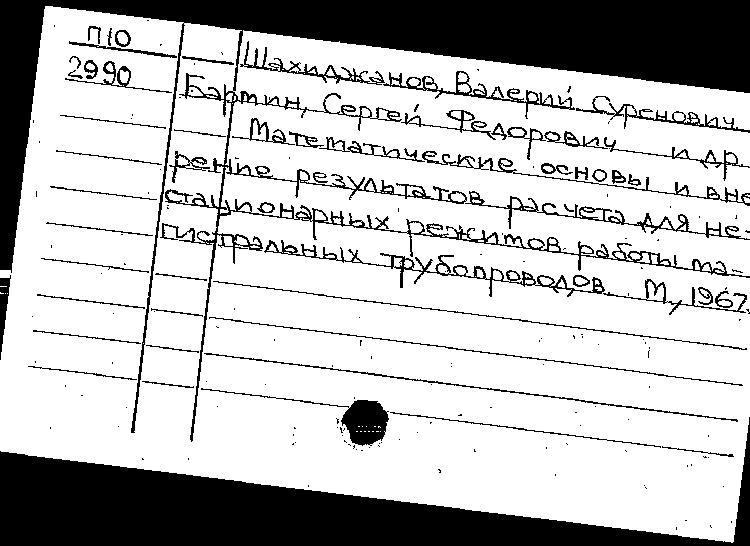 П10
2990
Шахиджанов, Валерий Суренович.
Бартин, Сергей Федорович и др.
Математические основы и вне-
рение результатов расчета для не-
стационарных режимов работы ма-
гистральных трубопроводов. М., 1967.